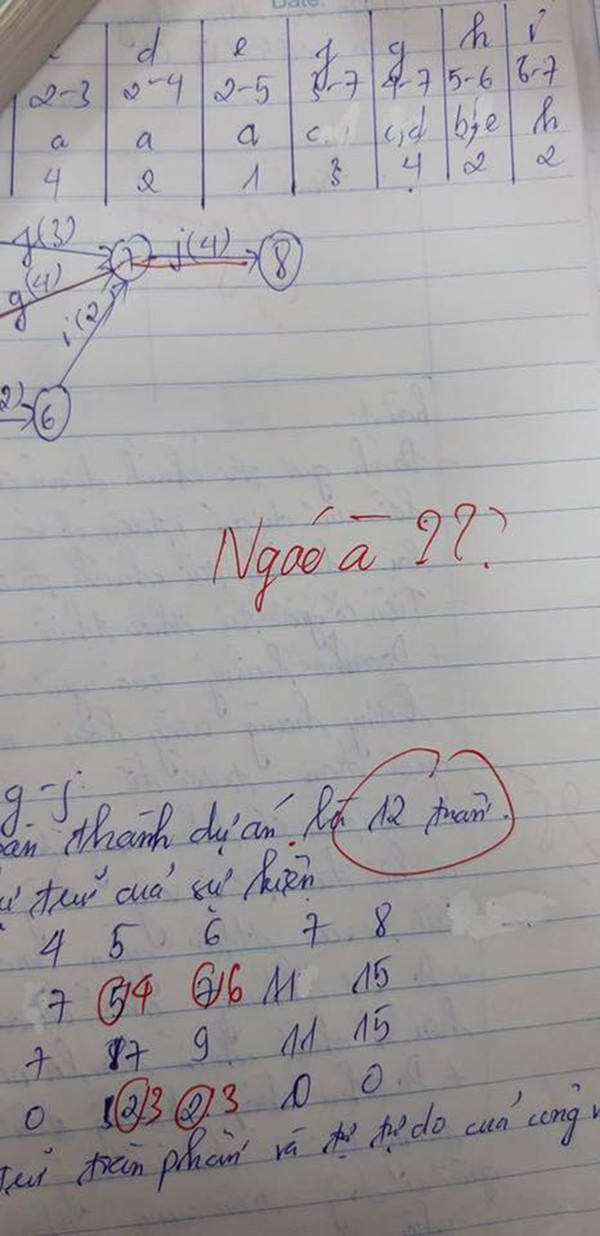 Date:
c d e f g h i
2-3 2-4 2-5 3-7 4-7 5-6 6-7
a a a c c,d b,e h
4 2 1 3 4 2 2
f(3) 7 j(4) 8
g(4)
i(2)
2) 6
Ngáo à ???
g-j
thành dự án là 12 tuần.
trữ của sự kiện
4 5 6 7 8
7 5 4 7 6 11 15
7 7 9 11 15
0 2 3 2 3 0 0
trữ toàn phần và tự do của công